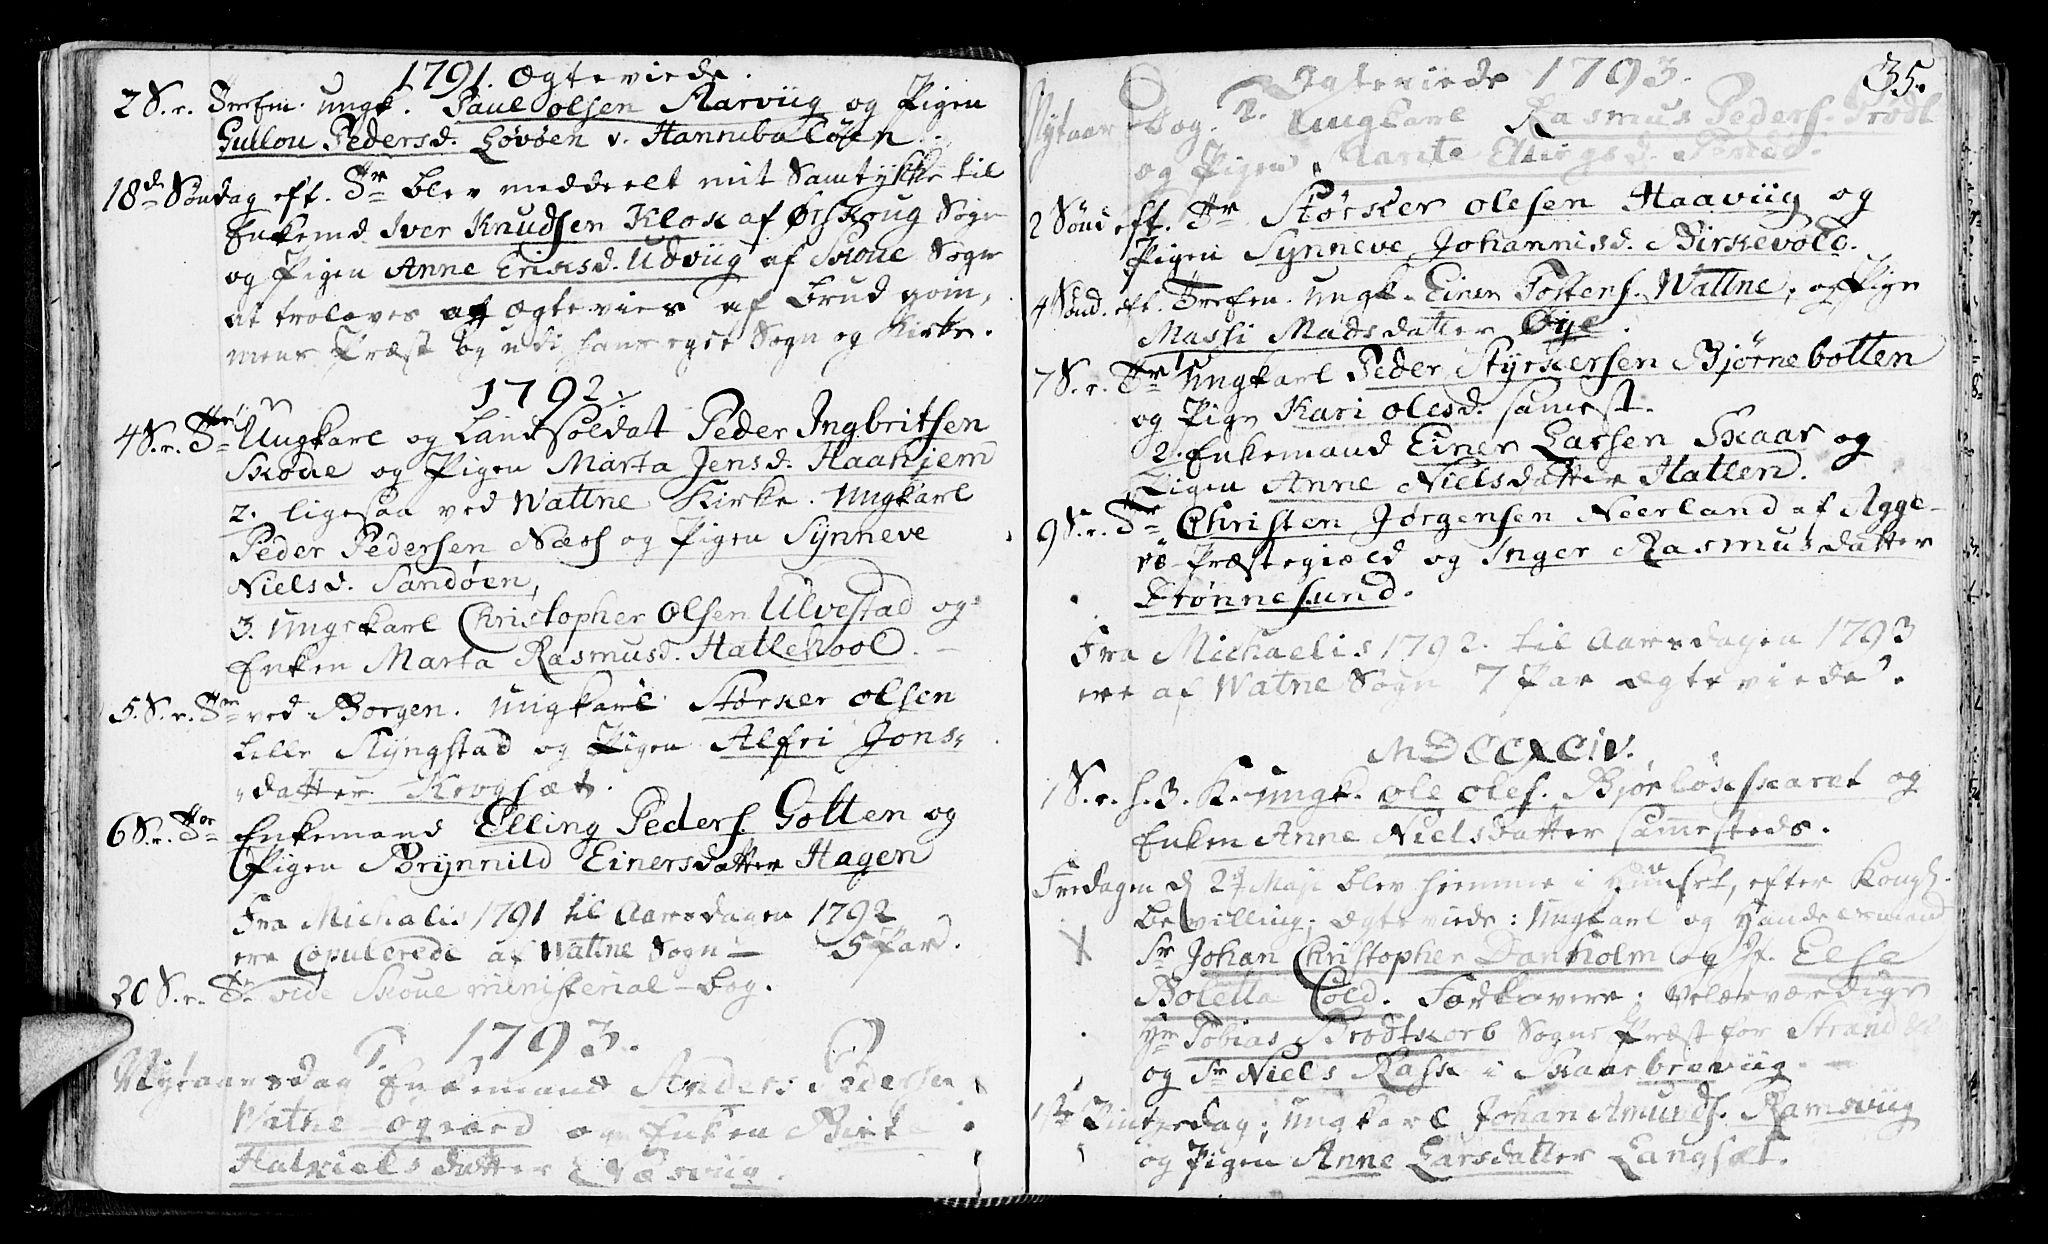 1791. Ægteviede.
2 S. r. Trefen. Ungk. Paul Olsen Aarviig og Pigen
Gullou Pedersd. Løvøen v. Hannibaløen.
18de Søndag eft. Tr blev meddeelt mit Samtykke til
Enkemd Iver Knudsen Klok af Ørskoug Sogn
og Pigen Anne Eriksd. Udviig af Skoue Sogn
at troloves og Ægtevies af Brudgom,
mens Præst og udi hans eget Sogn og Kirke.
1792
4 S. r. Tr Ungkarl og Landsoldat Peder Ingbritsen
Skoue og Pigen Marta Jensd. Haahjem
2. ligesaa ved Wattne Kirke. Ungkarl
Peder Pedersen Næss og Pigen Synneve
Nielsd. Sandøen,
3. Ungkarl Christopher Olsen Ulvestad og
Enken Marta Rasmusd. Hatlehool.
5. S. r. Tr ved Borgen. Ungkarl Størker Olsen
Lille Slyngstad og Pigen Alfri Jons,
datter Krogsæt.
6 S. r. Tr Enkemand Elling Peders. Gotten og
Pigen Brynnild Einersdatter Hagen
Fra Michalis 1791 til Aarsdagen 1792
ere Copulerede af Wattne Sogn — 5 Par.
20 S. r. Tr vide Skoue ministerial-bog.
1793.
Nytaarsdag Enkemand Anders Pedersen
Watne - og Enken Birte
datter viig.
35.
Ægteviede 1793.
Nytaar Dag. 2. Ungkarl Rasmus Peders.
og Pigen Marite Ellingsd.
2 Sønd eft. Tr Størker Olesen Haaviig og
Pigen Synneve Johannisd. Birkevold.
4 Sønd. eft. Trefen. Ungk. Einer Tostens. Wattne, og Pige
Massi Madsdatter Øye.
7 S. r. Tr Ungkarl Peder Styrkersen Bjørnebotten
og Pige Kari Olesd. samest.
2. Enkemand Einer Larsen Skaar og
Pigen Anne Nielsdatter Hatlen.
9 S. r. Tr Christen Jørgensen Neerland af Agge-
røe Præstegiæld og Inger Rasmusdatter
Drønnesund.
Fra Michaelis 1792. til Aarsdagen 1793
ere af Watne Sogn 7 Par Ægteviede.
MDCCXCIV.
1 S. r. h. 3. K. Ungk. Ole Oles. Bjørløkskaret og
Enken Anne Nielsdatter sammesteds.
Fredagen d 24 Maji blev hiemme i Huuset, efter Kongl.
bevilling, Ægteviede: Ungkarl og Handelsmand
Sr Johan Christopher Danholm og Jf. Else
Boletta Cold. Forlovere: Velærværdige
Hr Tobias Brodtkorb Sogne Præst for Strand
og Sr Niels Rask i Skaarbreviig.
1te Pintsedag; Ungkarl Johan Amunds. Ramsviig
og Pigen Anne Larsdatter Langsæt.